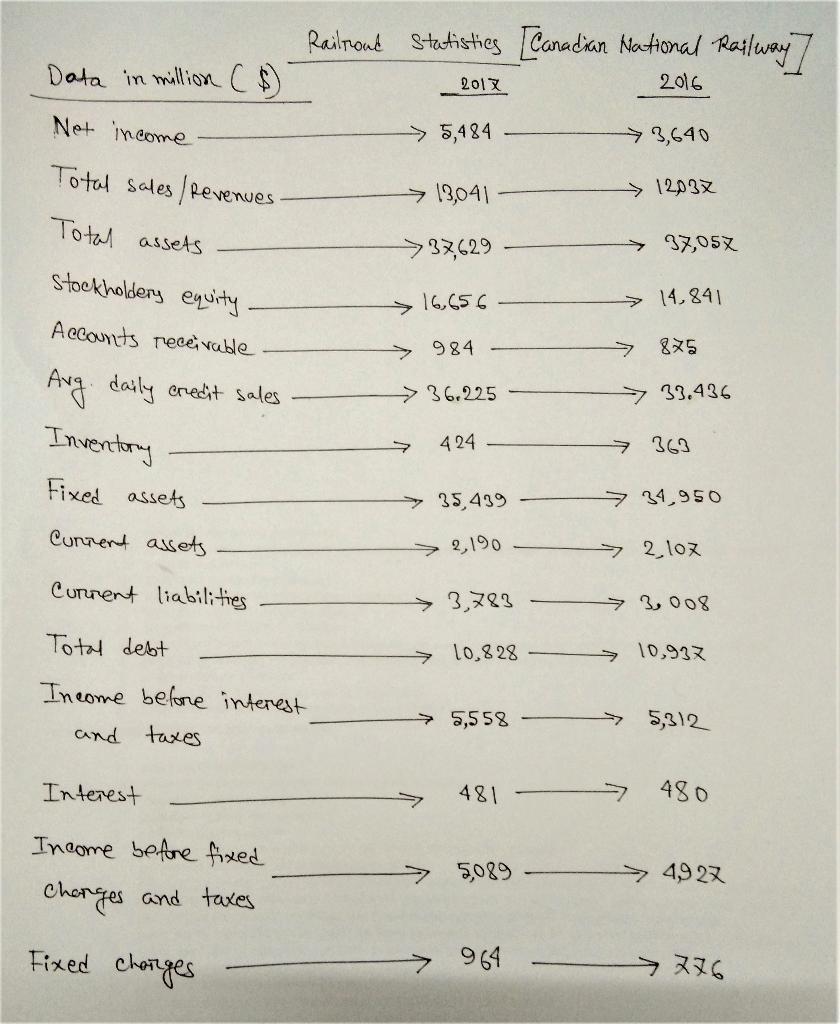 Railroad Statistics [Canadian National Railway]
Data in million ($) 2017 2016
Net income → 5,484 → 3,640
Total sales/Revenues → 13,041 → 12,037
Total assets → 37,629 → 37,057
Stockholders equity → 16,656 → 14,841
Accounts receivable → 984 → 875
Avg. daily credit sales → 36.225 → 33.436
Inventory → 424 → 363
Fixed assets → 35,439 → 34,950
Current assets → 2,190 → 2,107
Current liabilities → 3,783 → 3,008
Total debt → 10,828 → 10,937
Income before interest
and taxes → 5,558 → 5,312
Interest → 481 → 480
Income before fixed
charges and taxes → 5,089 → 4,927
Fixed charges → 964 → 776